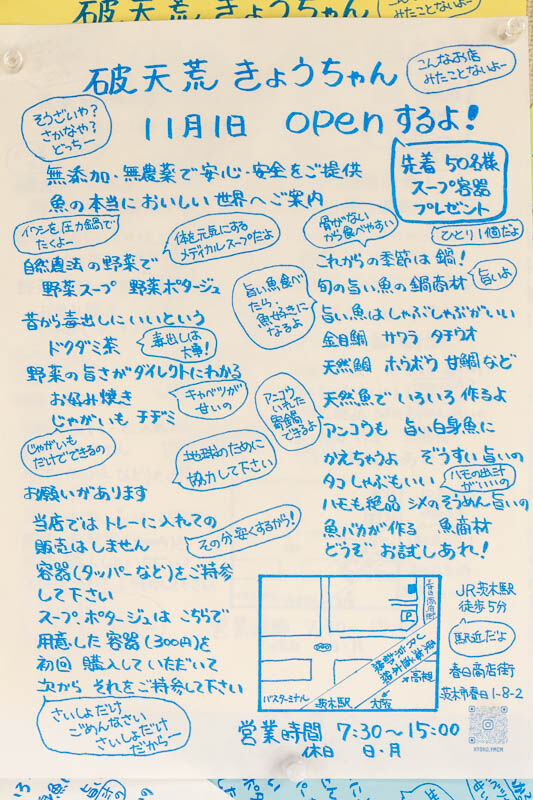 破天荒 きょうちゃん
こんなお店
みたことないよー
そうざいや？
さかなや？
どっちー
11月1日 openするよ！
無添加・無農薬で安心・安全をご提供
魚の本当においしい世界へご案内
先着 50名様
スープ容器
プレゼント
ひとり1個だよ
イワシを圧力鍋で
たくよー
体を元気にする
メディカルスープだよ
自然農法の野菜で
野菜スープ 野菜ポタージュ
昔から毒出しにいいという
ドクダミ茶
毒出しは
大事！
野菜の旨さがダイレクトにわかる
お好み焼き
キャベツが
甘いの
じゃがいもチヂミ
じゃがいも
だけでできるの
地球のために
協力して下さい
お願いがあります
当店ではトレーに入れての
販売はしません
その分安くするから！
容器(タッパーなど)をご持参
して下さい
スープ、ポタージュは こちらで
用意した容器(300円)を
初回 購入していただいて
次から それをご持参して下さい
さいしょだけ
ごめんなさい
さいしょだけ
だからー
骨がない
から食べやすい
これからの季節は鍋！
旬の旨い魚の鍋商材
旨いよ
旨い魚食べ
たら、
魚好きに
なるよ
旨い魚はしゃぶしゃぶがいい
金目鯛 サワラ タチウオ
天然鯛 ホウボウ 甘鯛など
アンコウ
いれた
寄鍋
できるよ
天然魚でいろいろ作るよ
アンコウも 旨い白身魚に
かえちゃうよ ぞうすい旨いの
タコしゃぶもいい
ハモの出汁
がいいの
ハモも絶品 シメのそうめん旨いの
魚バカが作る 魚商材
どうぞ お試しあれ！
春日商店街
P
JR京都線
高槻
大阪
バスターミナル
茨木駅
JR茨木駅
徒歩5分
駅近だよ
春日商店街
茨木市春日1-8-2
営業時間 7:30～15:00
休日 日・月
KYOKO.FMCM